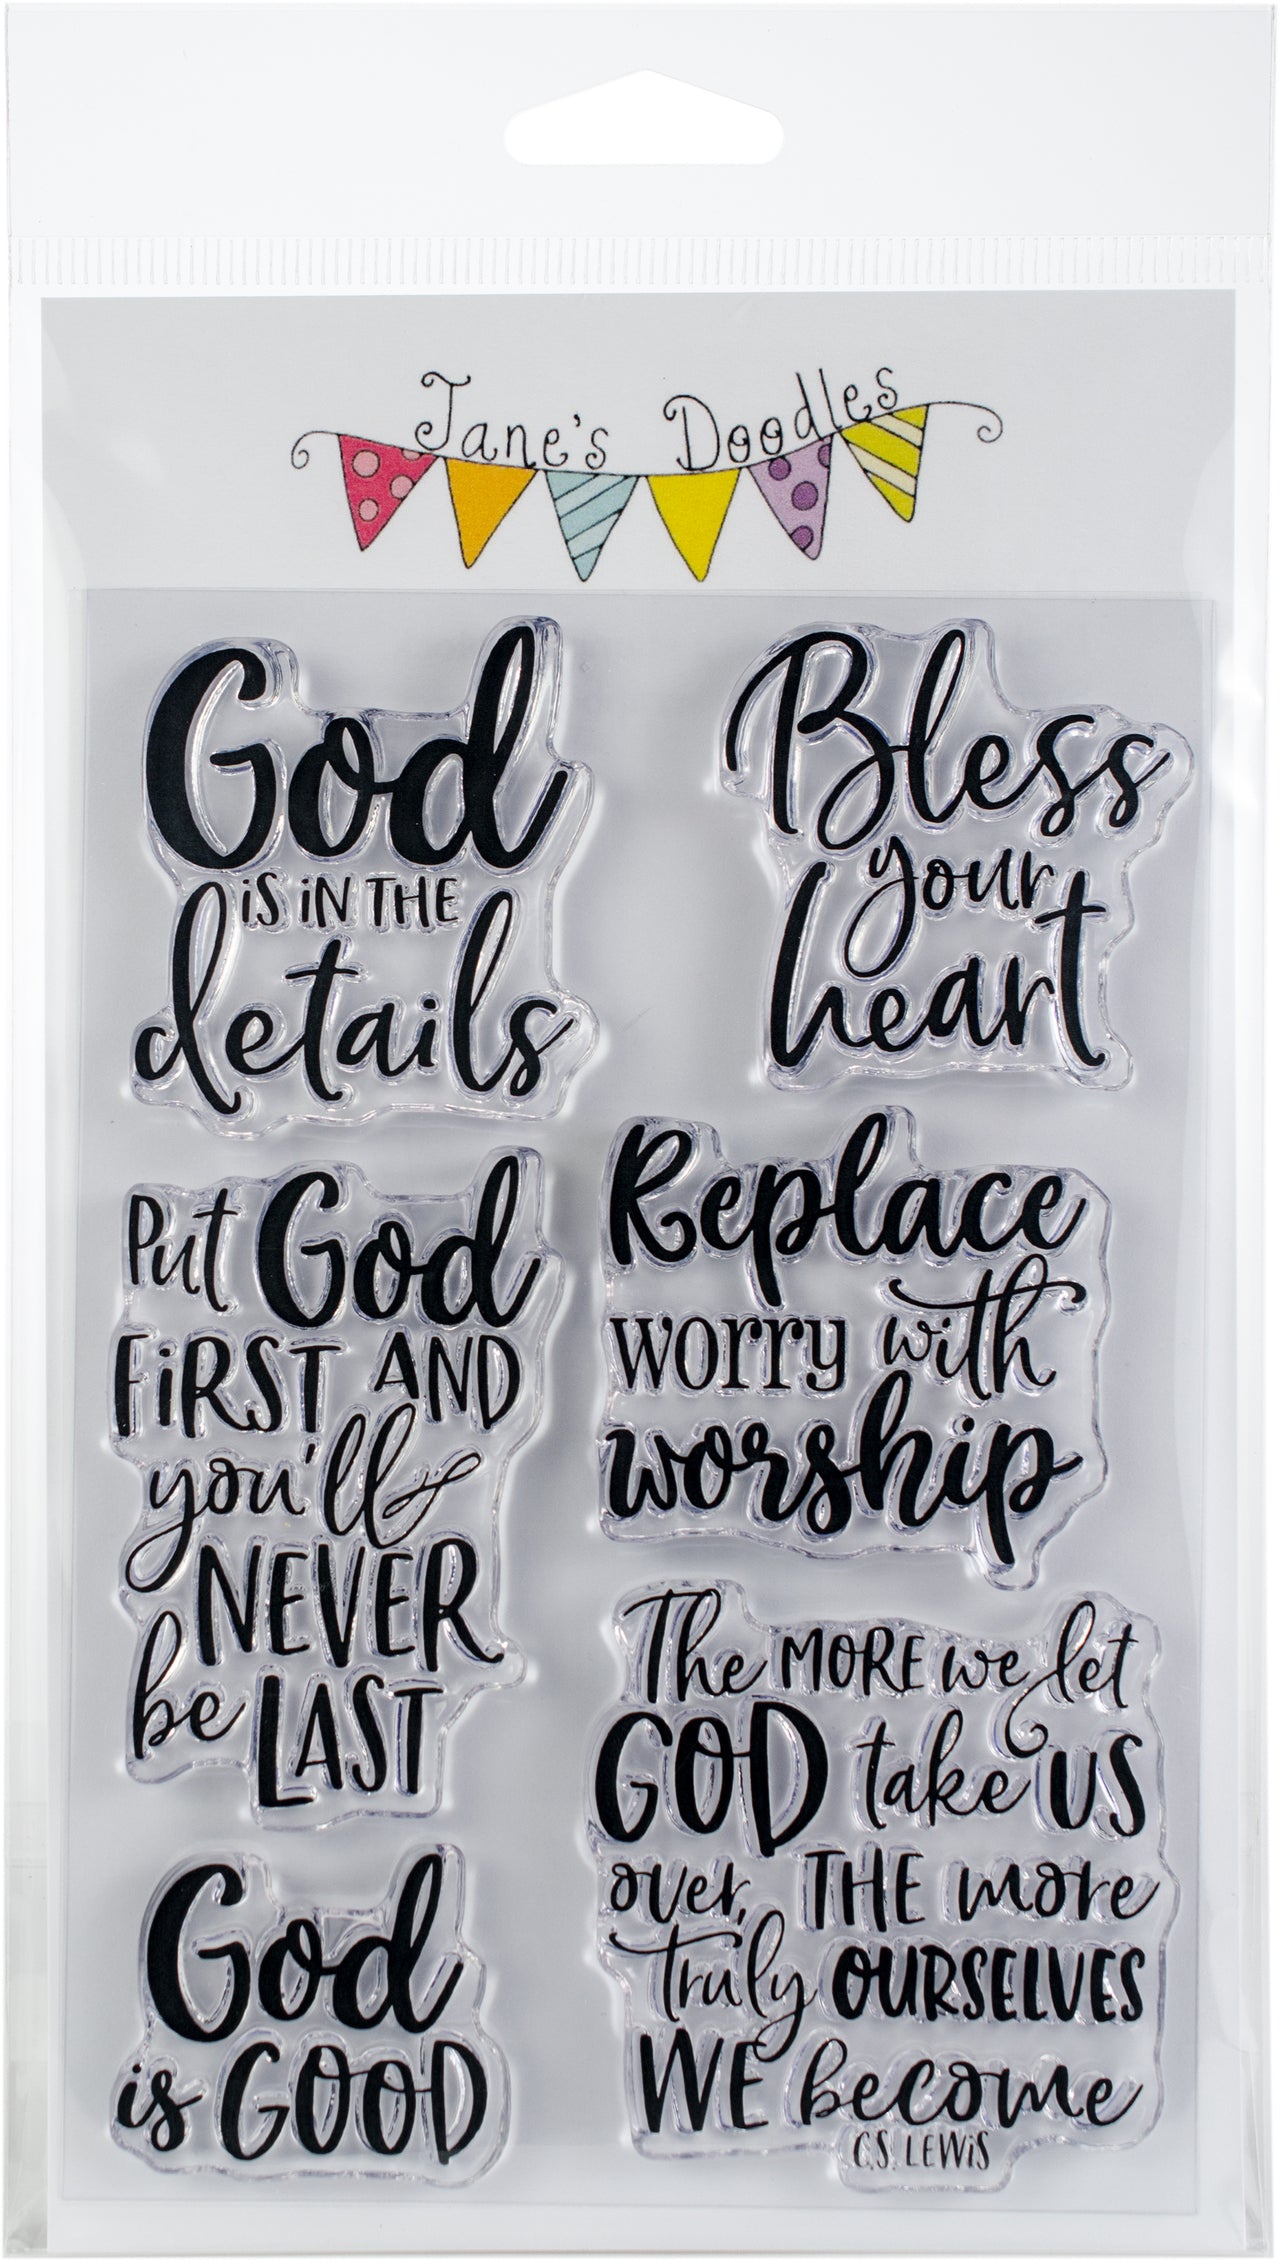 Jane's Doodles
God
iS iN THE
details
Bless
your
heart
Put God
FiRST AND
you'll
NEVER
be LAST
Replace
worry with
worship
God
is GOOD
The MORE we let
GOD take US
over, THE more
truly OURSELVES
WE become
C.S. LEWiS